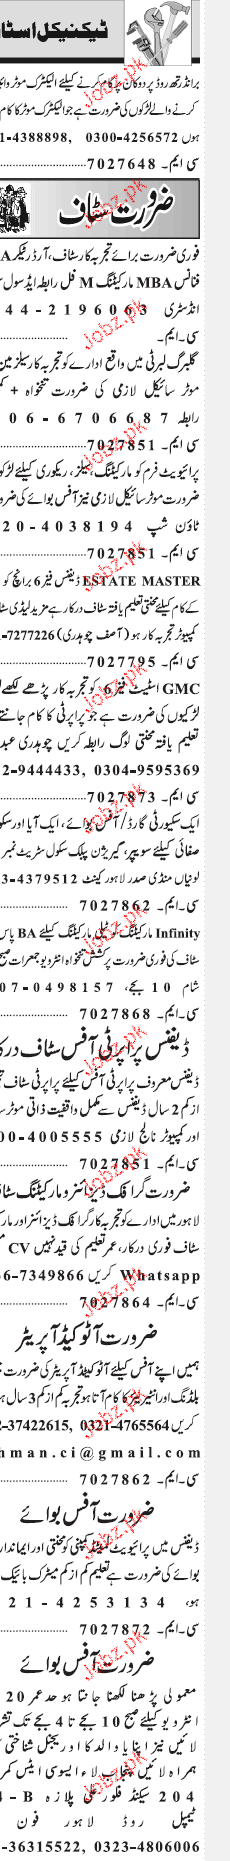 ٹیکنیکل اسٹا
برانڈرتھ روڈ پر دوکان پر کام کرنے کیلئے الیکٹرک موٹر وائنڈ
کرنے والے لڑکوں کی ضرورت ہے جو الیکٹرک موٹر کا کام
ہوں 0300-4256572 ,1-4388898
سی ایم۔ 7027648
ضرورت سٹاف
فوری ضرورت برائے تجربہ کار سٹاف، آرڈر ٹیکر A
فنانس MBA مارکیٹنگ M فل رابطہ ایڈ سول
انڈسٹری 44-2196063
سی۔ایم۔
گلبرگ لبرٹی میں واقع ادارے کو تجربہ کار سیلز مین
موٹر سائیکل لازمی کی ضرورت تنخواہ +
رابطہ 06-6706687
سی ایم۔ 7027851
پرائیویٹ فرم کو مارکیٹنگ، سیلز، ریکوری کیلئے لڑکو
ضرورت موٹر سائیکل لازمی نیز آفس بوائے کی ضرو
ٹاؤن شپ 20-4038194
سی ایم۔ 7027851
ESTATE MASTER ڈیفنس فیز 6 برانچ کو
کے کام کیلئے محنتی تعلیم یافتہ سٹاف درکار ہے مزید لیڈی سٹا
کمپیوٹر تجربہ کار ہو (آصف چوہدری) 7277226-
سی ایم۔ 7027795
GMC اسٹیٹ فیز 6 کو تجربہ کار پڑھے لکھے
لڑکیوں کی ضرورت ہے جو پراپرٹی کا کام جانتے
تعلیم یافتہ محنتی لوگ رابطہ کریں چوہدری عبد
2-9444433, 0304-9595369
سی ایم۔ 7027873
ایک سکیورٹی گارڈ/ آفس بوائے، ایک آیا اور سکو
صفائی کیلئے سویپر، گیریژن پبلک سکول سٹریٹ نمبر
لونیاں منڈی صدر لاہور کینٹ 3-4379512
سی۔ایم۔ 7027862
Infinity مارکیٹنگ کو ٹیلی مارکیٹنگ کیلئے BA پاس
سٹاف کی فوری ضرورت پرکشش تنخواہ انٹرویو جمعرات صبح
شام 10 بجے، 07-0498157
سی۔ایم۔ 7027868
ڈیفنس پراپرٹی آفس سٹاف درک
ڈیفنس معروف پراپرٹی آفس کیلئے پراپرٹی سٹاف
از کم 2 سال ڈیفنس سے مکمل واقفیت ذاتی موٹر س
اور کمپیوٹر نالج لازمی 00-4005555
سی۔ایم۔ 7027851
ضرورت گرافک ڈیزائنر و مارکیٹنگ سٹا
لاہور میں ادارے کو تجربہ کار گرافک ڈیزائنر اور مار
سٹاف فوری درکار، عمر تعلیم کی قید نہیں CV
Whatsapp کریں 6-7349866
سی۔ایم۔ 7027864
ضرورت آٹو کیڈ آپریٹر
ہمیں اپنے آفس کیلئے آٹو کیڈ آپریٹر کی ضرورت
بلڈنگ اور انٹیریئر کا کام آتا ہو تجربہ کم از کم 3 سال ہو
کریں 0321-4765564 ,2-37422615
hman.ci@gmail.com
سی۔ایم۔ 7027862
ضرورت آفس بوائے
ڈیفنس میں پرائیویٹ لمیٹڈ کمپنی کو محنتی اور ایماندار
بوائے کی ضرورت ہے تعلیم کم از کم میٹرک بائیک
ہو، 21-4253134
سی۔ایم۔ 7027872
ضرورت آفس بوائے
معمولی پڑھنا لکھنا جانتا ہو حد عمر 20
انٹرویو کیلئے صبح 10 بجے تا 4 بجے تک تشر
لائیں نیز اپنا یا والد کا اوریجنل شناختی
ہمراہ لائیں پنجاب لاء ایسوسی ایٹس کمر
204 سیکنڈ فلور علی پلازہ 4-B
ٹیمپل روڈ لاہور فون
-36315522, 0323-4806006